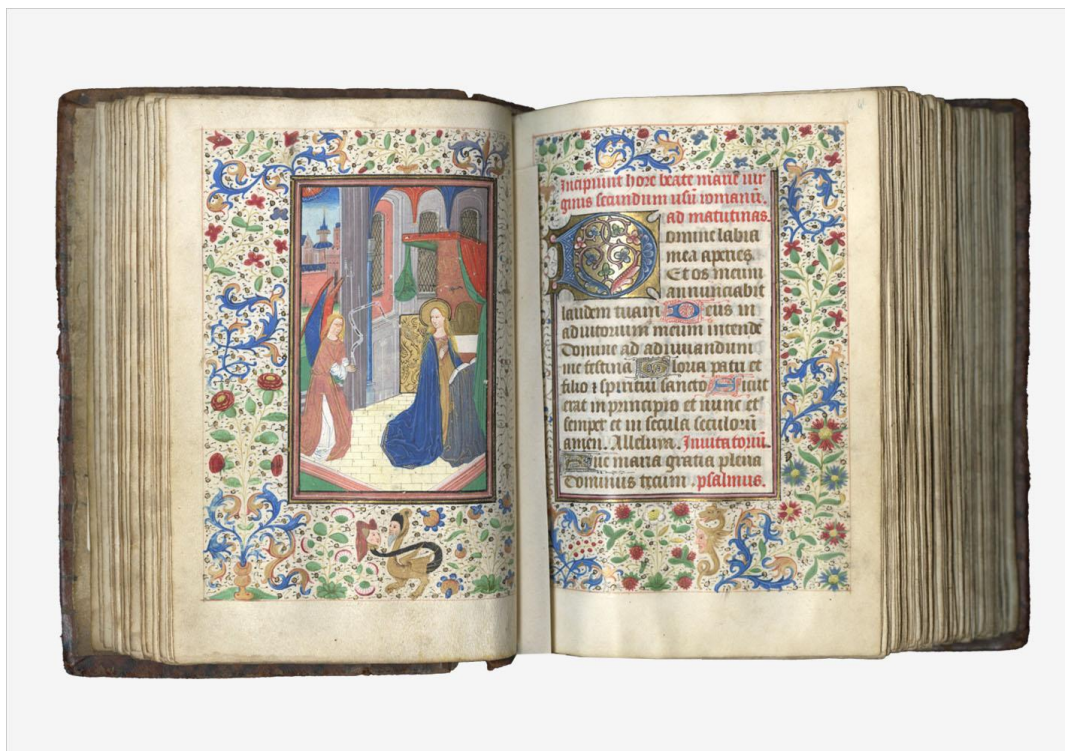 Incipiunt hore beate marie vir
ginis secundum usū romanū.
ad matutinas.
Domine labia
mea aperies
Et os meum
annunciabit
laudem tuam Deus in
adiutorium meum intende
Domine ad adiuuandum
me festina Gloria patri et
filio ⁊ spiritui sancto Sicut
erat in principio et nunc et
semper et in secula seculorū
amen. Alleluya. Inuitatoriū.
Aue maria gratia plena
Dominus tecum. psalmus.